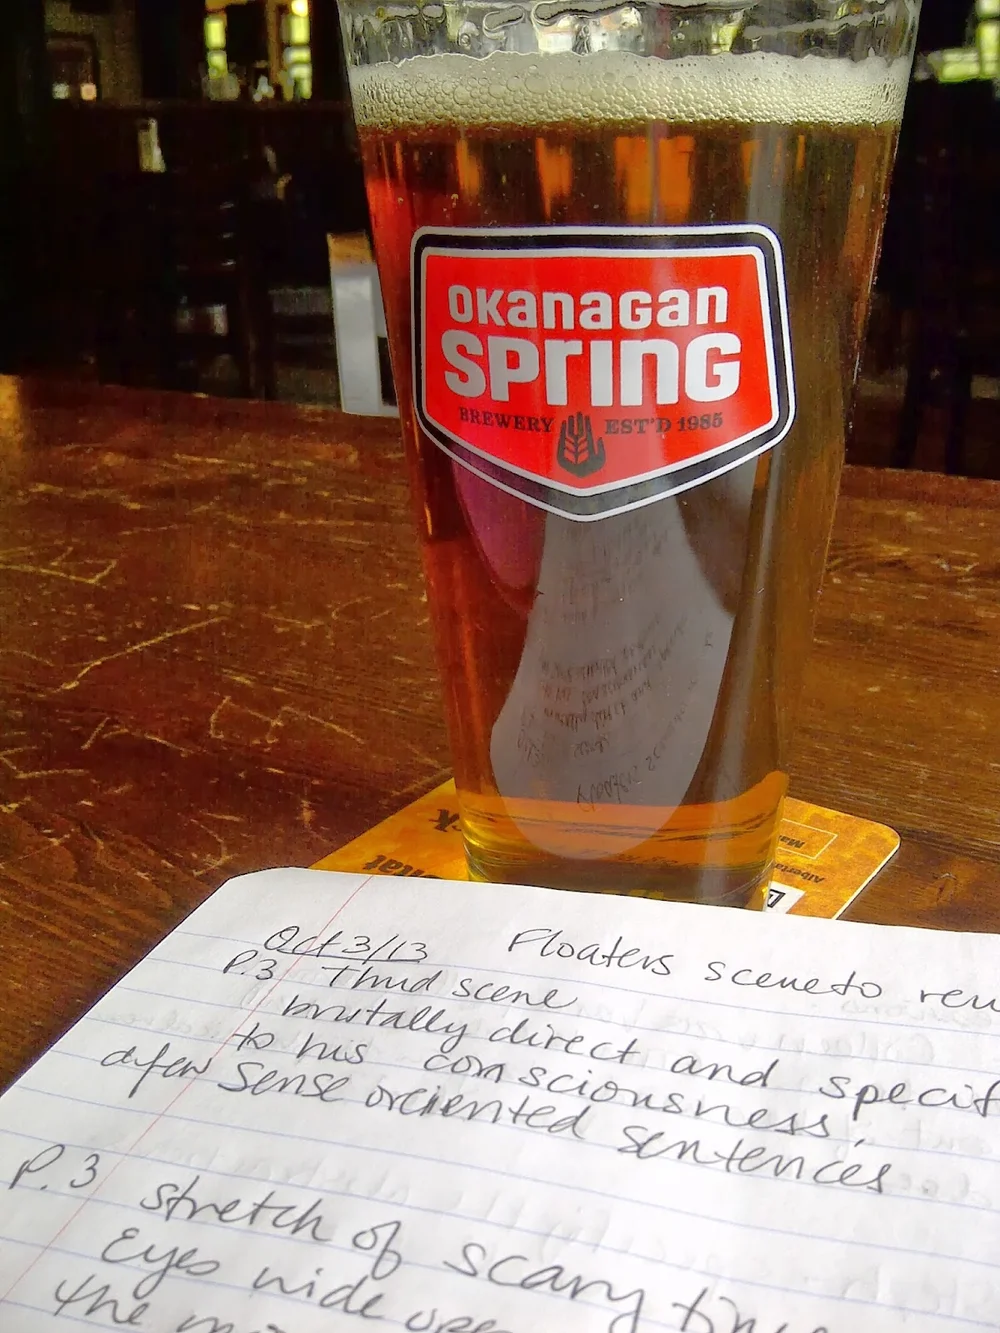 OKanaGan
SPrInG
BREWERY EST'D 1985
Oct 3/13 Floaters scene to
P.3 Third scene
brutally direct and specif
to his consciousness,
a few sense orciented sentences.
P.3 stretch of scary
Eyes wide ope
the
Alberta